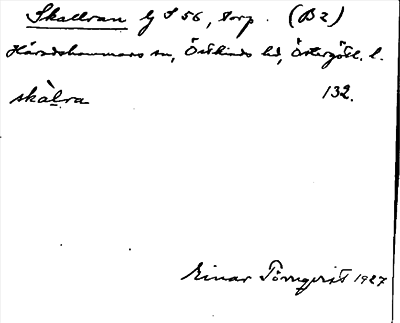 Skallran lj S 56, torp. (B2)
Häradshammars sn, Östkinds hd, Östergötl. l.
skàlra 132.
Einar Törnqvist 1927